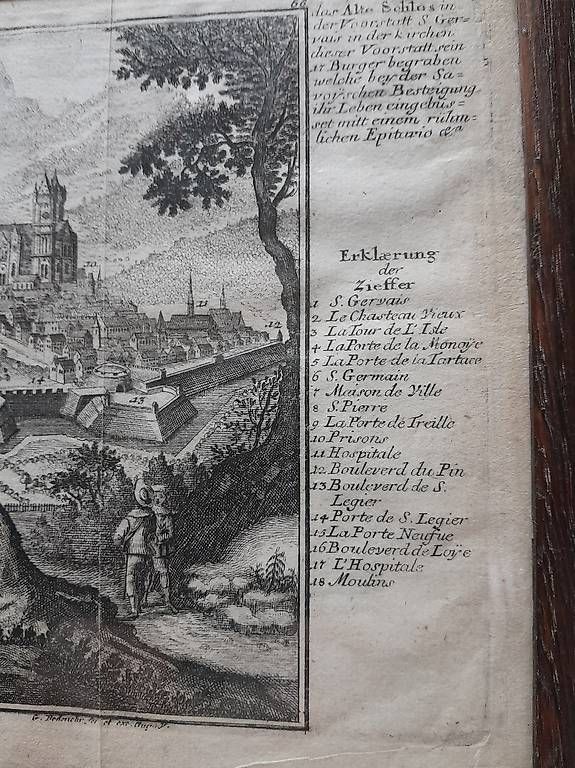 66
das Alte Schlos in
der Vorstatt S. Ger=
vais in der kirchen
dieser Vorstatt sein
17 Burger begraben
welche bey der Sa=
voyschen Besteigung
ihr Leben eingebüs=
set mitt einem rühm=
lichen Epitario &c
Erklærung
der
Zieffer
1 S. Gervais
2 Le Chasteau Vieux
3 La Tour de L'Isle
4 La Porte de la Monoye
5 La Porte de la Tartace
6 S. Germain
7 Maison de Ville
8 S. Pierre
9 La Porte de Treille
10 Prisons
11 Hospitale
12 Bouleverd du Pin
13 Bouleverd de S.
Legier
14 Porte de S. Legier
15 La Porte Neufue
16 Bouleverd de Loÿe
17 L'Hospitale
18 Moulins
10
11
12
14
13
G. Bodenehr. fe et exc. Aug. V.